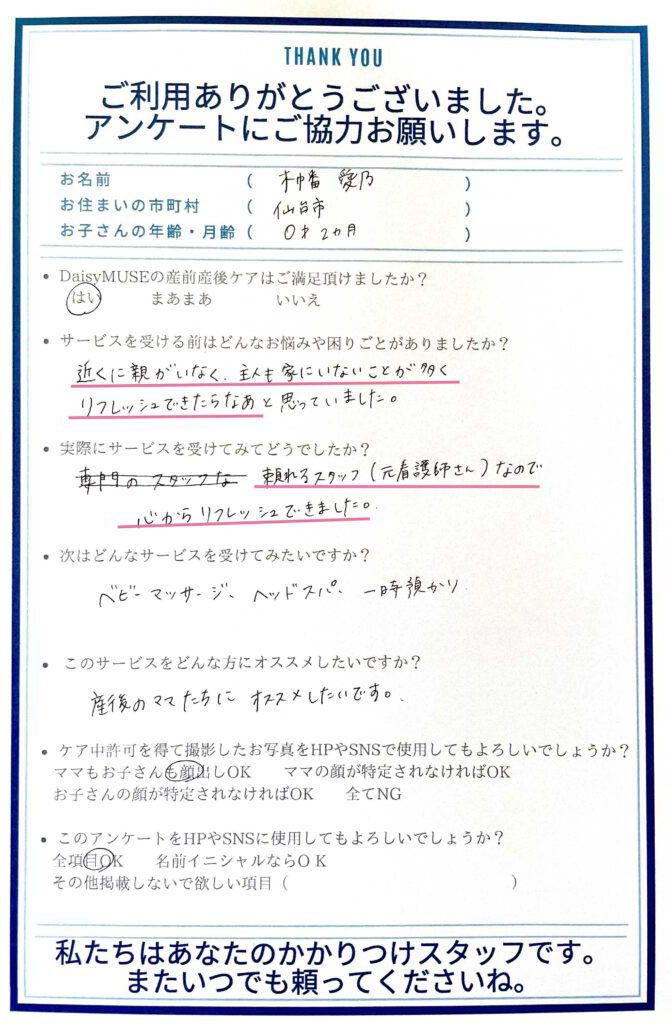 THANK YOU
ご利用ありがとうございました。
アンケートにご協力お願いします。
お名前 ( 木幡 愛乃 )
お住まいの市町村 ( 仙台市 )
お子さんの年齢・月齢 ( 0才2カ月 )
• DaisyMUSEの産前産後ケアはご満足頂けましたか？
はい まあまあ いいえ
• サービスを受ける前はどんなお悩みや困りごとがありましたか？
近くに親がいなく、主人も家にいないことが多く
リフレッシュできたらなあと思っていました。
• 実際にサービスを受けてみてどうでしたか？
専門のスタッフな 頼れるスタッフ(元看護師さん)なので
心からリフレッシュできました。
• 次はどんなサービスを受けてみたいですか？
ベビーマッサージ、ヘッドスパ、一時預かり
• このサービスをどんな方にオススメしたいですか？
産後のママたちにオススメしたいです。
• ケア中許可を得て撮影したお写真をHPやSNSで使用してもよろしいでしょうか？
ママもお子さんも顔出しOK ママの顔が特定されなければOK
お子さんの顔が特定されなければOK 全てNG
• このアンケートをHPやSNSに使用してもよろしいでしょうか？
全項目OK 名前イニシャルならＯＫ
その他掲載しないで欲しい項目（ ）
私たちはあなたのかかりつけスタッフです。
またいつでも頼ってくださいね。